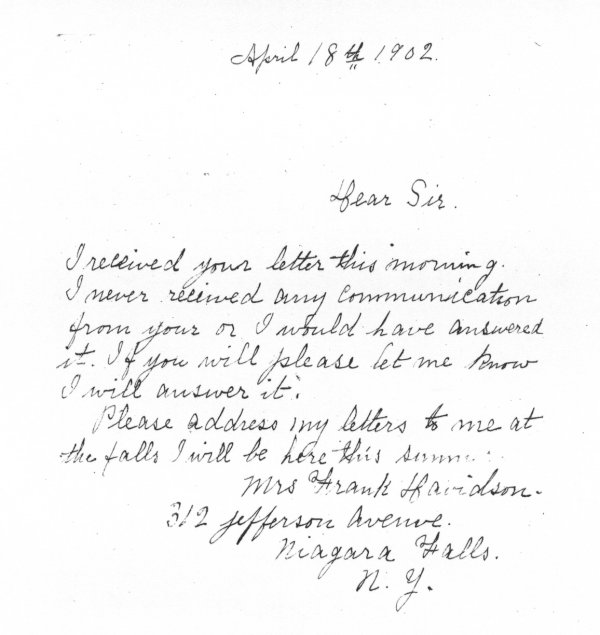 April 18th 1902.
Dear Sir.
I received your letter this morning.
I never received any communication
from your or I would have answered
it. If you will please let me know
I will answer it.
Please address my letters to me at
the falls I will be here this
Mrs Frank Davidson.
312 Jefferson Avenue.
Niagara Falls.
N. Y.